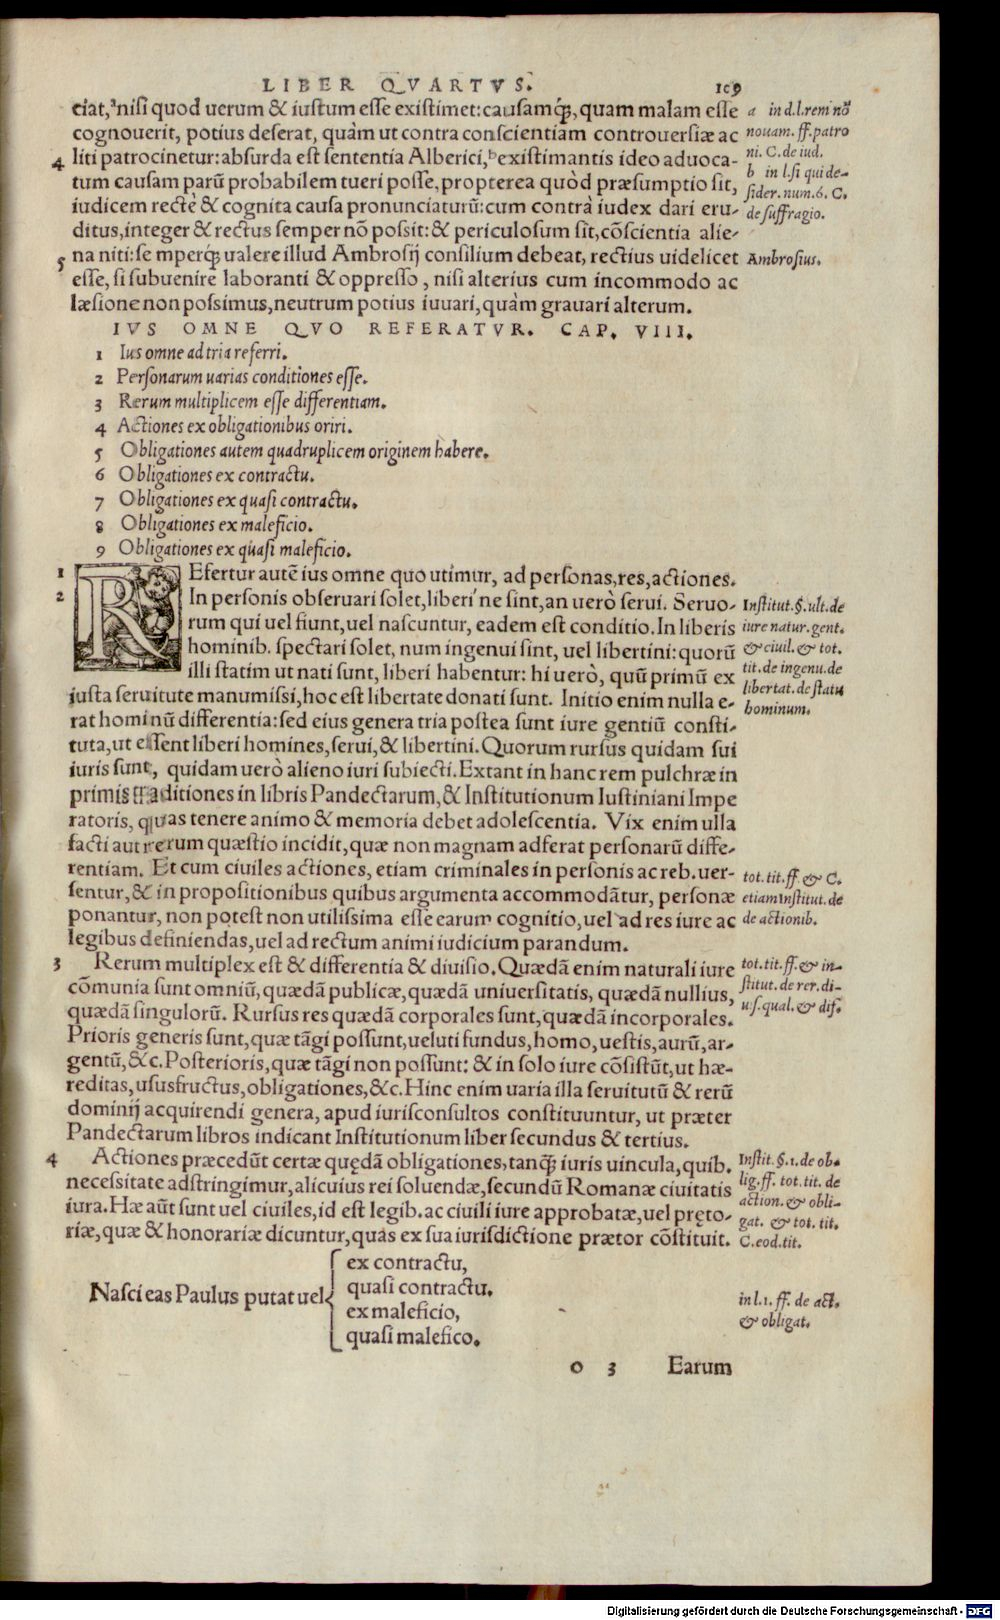 LIBER QVARTVS. 109
ciat,ᵃnisi quod uerum & iustum esse existimet: causamq́;, quam malam esse
cognouerit, potius deserat, quàm ut contra conscientiam controuersiæ ac
4 liti patrocinetur: absurda est sententia Alberici,ᵇexistimantis ideo aduoca-
tum causam parū probabilem tueri posse, propterea quòd præsumptio sit,
iudicem rectè & cognita causa pronunciaturū: cum contrà iudex dari eru-
ditus, integer & rectus semper nō possit: & periculosum sit, cōscientia alie-
5 na niti: se mperq́; ualere illud Ambrosij consilium debeat, rectius uidelicet
esse, si subuenire laboranti & oppresso, nisi alterius cum incommodo ac
læsione non possimus, neutrum potius iuuari, quàm grauari alterum.
a in d.l.rem nō
nouam. ff. patro
ni. C. de iud.
b in l.si qui de-
sider. num. 6. C.
de suffragio.
Ambrosius.
IVS OMNE QVO REFERATVR. CAP. VIII.
1 Ius omne ad tria referri.
2 Personarum uarias conditiones esse.
3 Rerum multiplicem esse differentiam.
4 Actiones ex obligationibus oriri.
5 Obligationes autem quadruplicem originem habere.
6 Obligationes ex contractu.
7 Obligationes ex quasi contractu.
8 Obligationes ex maleficio.
9 Obligationes ex quasi maleficio.
1 REfertur autē ius omne quo utimur, ad personas, res, actiones.
2 In personis obseruari solet, liberi ne sint, an uerò serui. Seruo-
rum qui uel fiunt, uel nascuntur, eadem est conditio. In liberis
hominib. spectari solet, num ingenui sint, uel libertini: quorū
illi statim ut nati sunt, liberi habentur: hi uerò, quū primū ex
iusta seruitute manumissi, hoc est libertate donati sunt. Initio enim nulla e-
rat hominū differentia: sed eius genera tria postea sunt iure gentiū consti-
tuta, ut essent liberi homines, serui, & libertini. Quorum rursus quidam sui
iuris sunt, quidam uerò alieno iuri subiecti. Extant in hanc rem pulchræ in
primis traditiones in libris Pandectarum, & Institutionum Iustiniani Impe
ratoris, quas tenere animo & memoria debet adolescentia. Vix enim ulla
facti aut rerum quæstio incidit, quæ non magnam adferat personarū diffe-
rentiam. Et cum ciuiles actiones, etiam criminales in personis ac reb. uer-
sentur, & in propositionibus quibus argumenta accommodātur, personæ
ponantur, non potest non utilissima esse earum cognitio, uel ad res iure ac
legibus definiendas, uel ad rectum animi iudicium parandum.
Institut. §. ult. de
iure natur. gent.
& ciuil. & tot.
tit. de ingenu. de
libertat. de statu
hominum.
tot. tit. ff & C.
etiam Institut. de
de actionib.
3 Rerum multiplex est & differentia & diuisio. Quædā enim naturali iure
cōmunia sunt omniū, quædā publicæ, quædā uniuersitatis, quædā nullius,
quædā singulorū. Rursus res quædā corporales sunt, quædā incorporales.
Prioris generis sunt, quæ tāgi possunt, ueluti fundus, homo, uestis, aurū, ar-
gentū, &c. Posterioris, quæ tāgi non possunt: & in solo iure cōsistūt, ut hæ-
reditas, ususfructus, obligationes, &c. Hinc enim uaria illa seruitutū & rerū
dominij acquirendi genera, apud iurisconsultos constituuntur, ut præter
Pandectarum libros indicant Institutionum liber secundus & tertius.
tot. tit. ff. & in-
stitut. de rer. di-
uis. qual. & dif.
4 Actiones præcedūt certæ quędā obligationes, tanq́; iuris uincula, quib.
necessitate adstringimur, alicuius rei soluendæ, secundū Romanæ ciuitatis
iura. Hæ aūt sunt uel ciuiles, id est legib. ac ciuili iure approbatæ, uel pręto-
riæ, quæ & honorariæ dicuntur, quas ex sua iurisdictione prætor cōstituit.
Instit. §. 1. de ob-
lig. ff. tot. tit. de
action. & obli-
gat. & tot. tit.
C. eod. tit.
Nasci eas Paulus putat uel
ex contractu,
quasi contractu.
ex maleficio,
quasi malefico.
in l. 1. ff. de act.
& obligat.
o 3 Earum
Digitalisierung gefördert durch die Deutsche Forschungsgemeinschaft - DFG